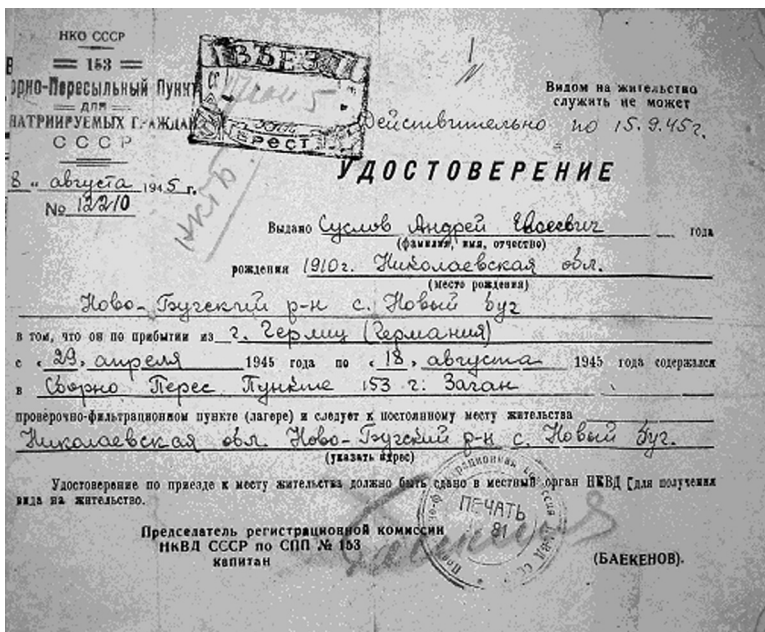 НКО СССР
153
орно-Пересыльный Пункт
для
НАТРИИРУЕМЫХ ГРАЖДАН
СССР
8 „ августа 1945 г.
№ 12210
ВЪЕЗД
БРЕСТ
НКГБ
Видом на жительство
служить не может
Действительно по 15.9.45г.
УДОСТОВЕРЕНИЕ
Выдано Суслов Андрей года
(фамилия, имя, отчество)
рождения 1910г. Николаевская обл.
(место рождения)
Ново-Бугский р-н с. Новый Буг
в том, что он по прибытии из г. Герлиц (Германия)
с „29„ апреля 1945 года по „18„ августа 1945 года содержался
в Сборно Перес Пункте 153 г. Заган
проверочно-фильтрационном пункте (лагере) и следует к постоянному месту жительства
Николаевская обл Ново-Бугский р-н с. Новый Буг.
(указать адрес)
Удостоверение по приезде к месту жительства должно быть сдано в местный орган НКВД для получения
вида на жительство.
Председатель регистрационной комиссии
НКВД СССР по СПП № 153
капитан
(БАЕКЕНОВ).
ПЕЧАТЬ
81